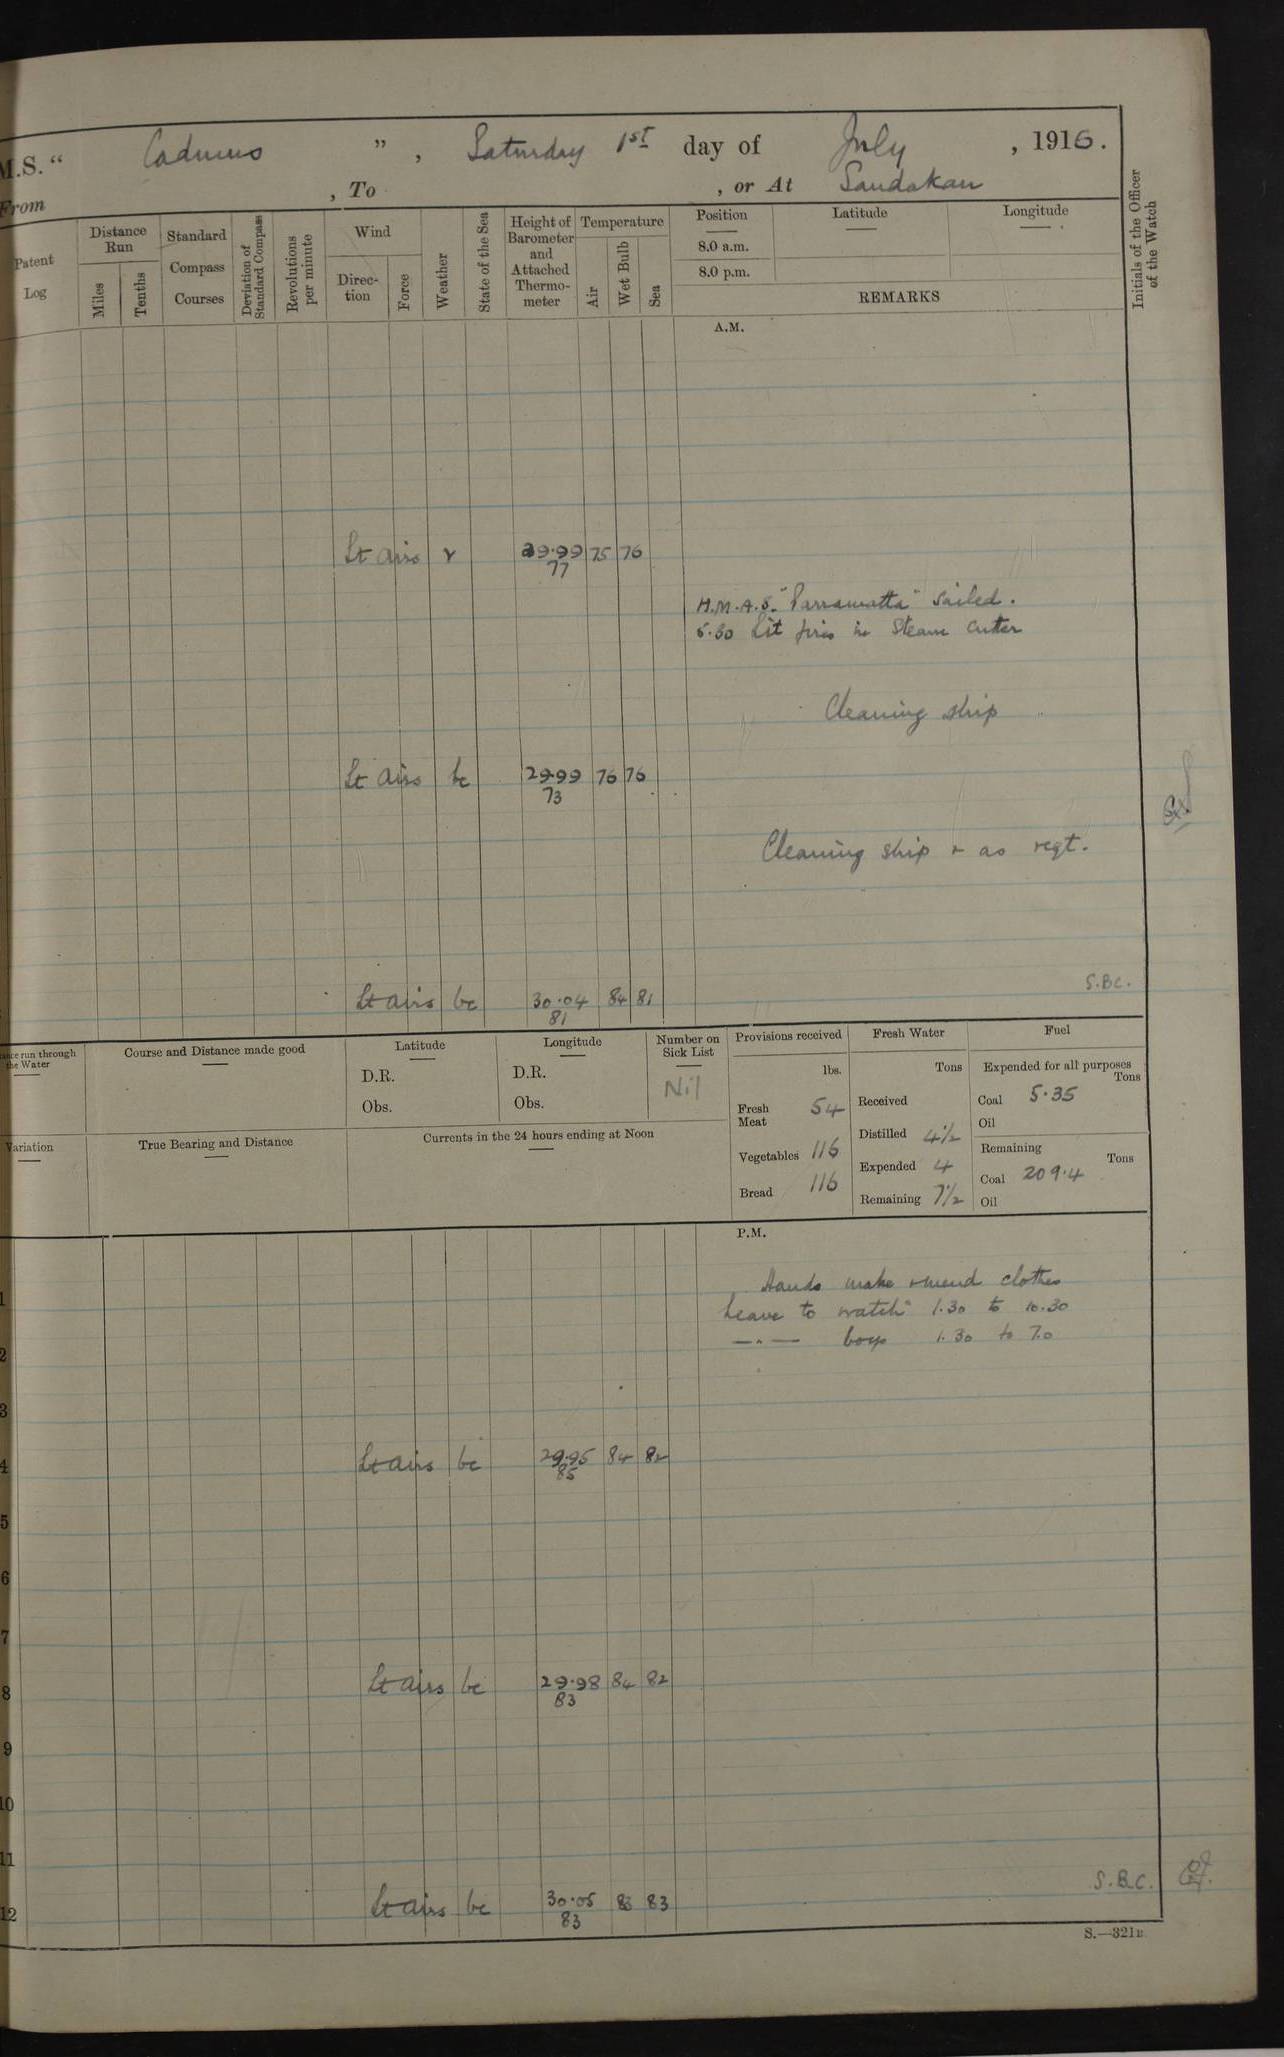 M.S. “ Cadmus ” , Saturday 1st day of July , 1916.
From , To , or At Sandakan
Patent Log
Distance Run
Miles
Tenths
Standard Compass Courses
Deviation of Standard Compass
Revolutions per minute
Wind
Direction
Force
Weather
State of the Sea
Height of Barometer and Attached Thermometer
Temperature
Air
Wet Bulb
Sea
Position
8.0 a.m.
8.0 p.m.
Latitude
Longitude
REMARKS
Initials of the Officer of the Watch
A.M.
Lt airs r 29.99 75 76
77
H.M.A.S. "Parramatta" sailed.
5.30 Lit fires in Steam Cutter
Cleaning ship
Lt airs bc 29.99 76 76
73
Cleaning ship & as reqt.
S.B.C.
Lt airs bc 30.04 84 81
81
ance run through the Water
Course and Distance made good
Latitude
D.R.
Obs.
Longitude
D.R.
Obs.
Number on Sick List
Nil
Provisions received
lbs.
Fresh Meat 54
Vegetables 116
Bread 116
Fresh Water
Tons
Received
Distilled 4½
Expended 4
Remaining 7½
Fuel
Expended for all purposes
Tons
Coal 5.35
Oil
Remaining
Tons
Coal 209.4
Oil
Variation
True Bearing and Distance
Currents in the 24 hours ending at Noon
P.M.
Hands make & mend clothes
1
Leave to watch 1.30 to 10.30
—"— boys 1.30 to 7.0
2
3
4 Lt airs bc 29.95 84 82
85
5
6
7
8 Lt airs bc 29.98 84 82
83
9
10
11
S.B.C.
12 Lt airs bc 30.05 83 83
83
S.—321B